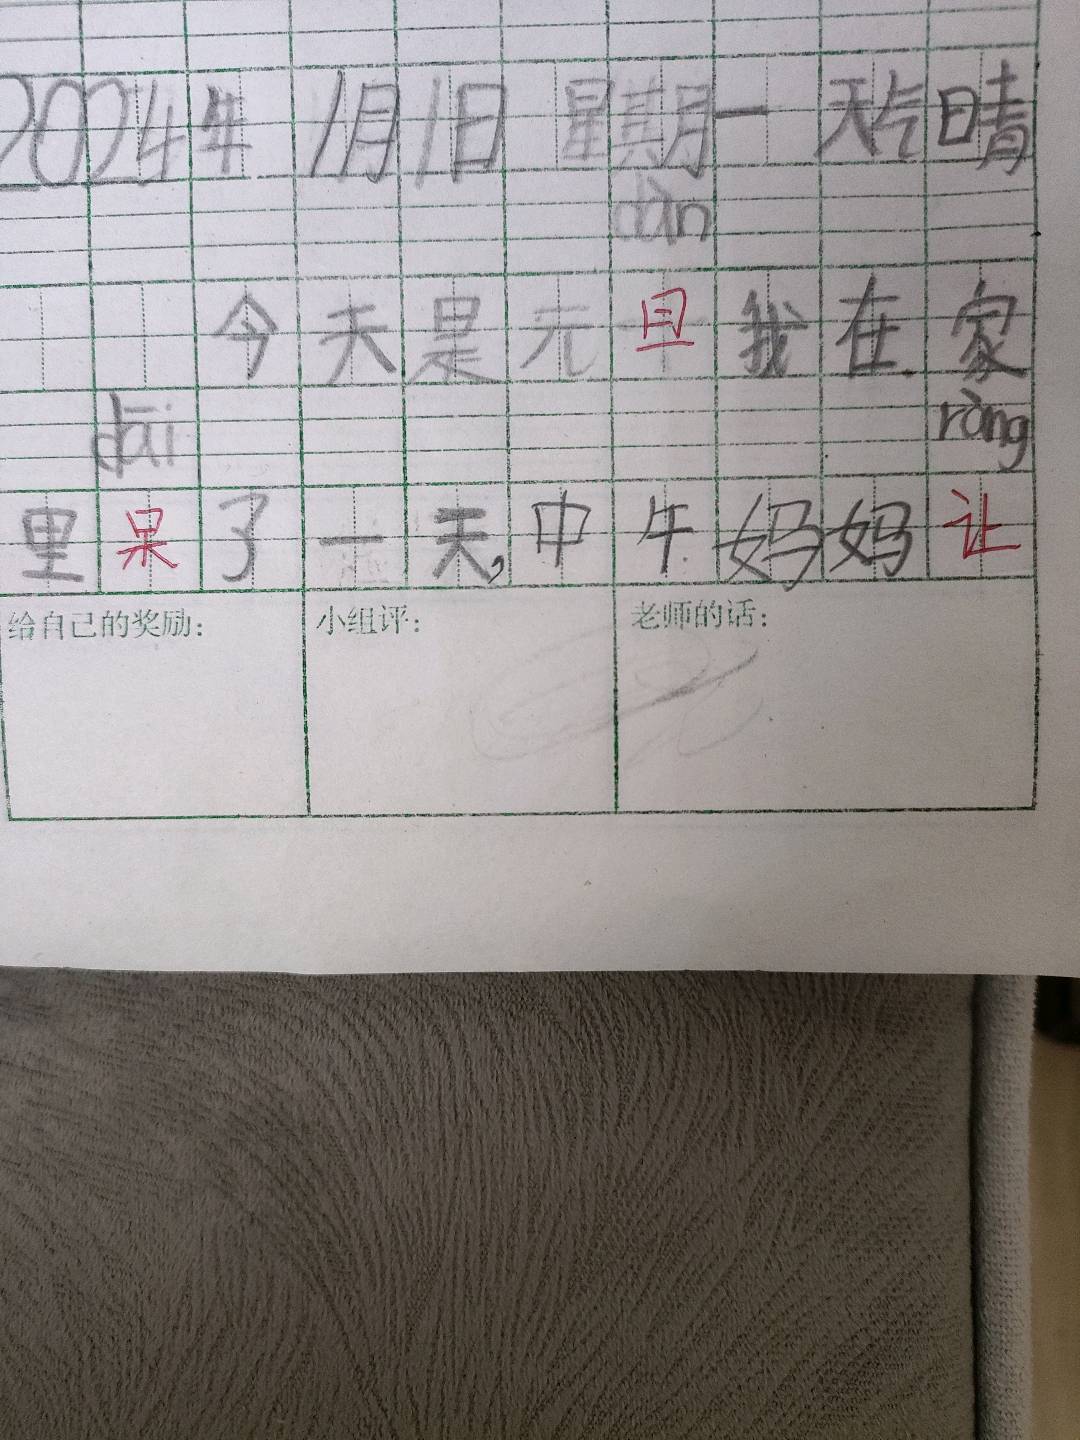 2024年 1月1日 星期一 天气晴
dàn
今天是元旦我在家
dāi ràng
里呆了一天,中午妈妈让
给自己的奖励: 小组评: 老师的话: